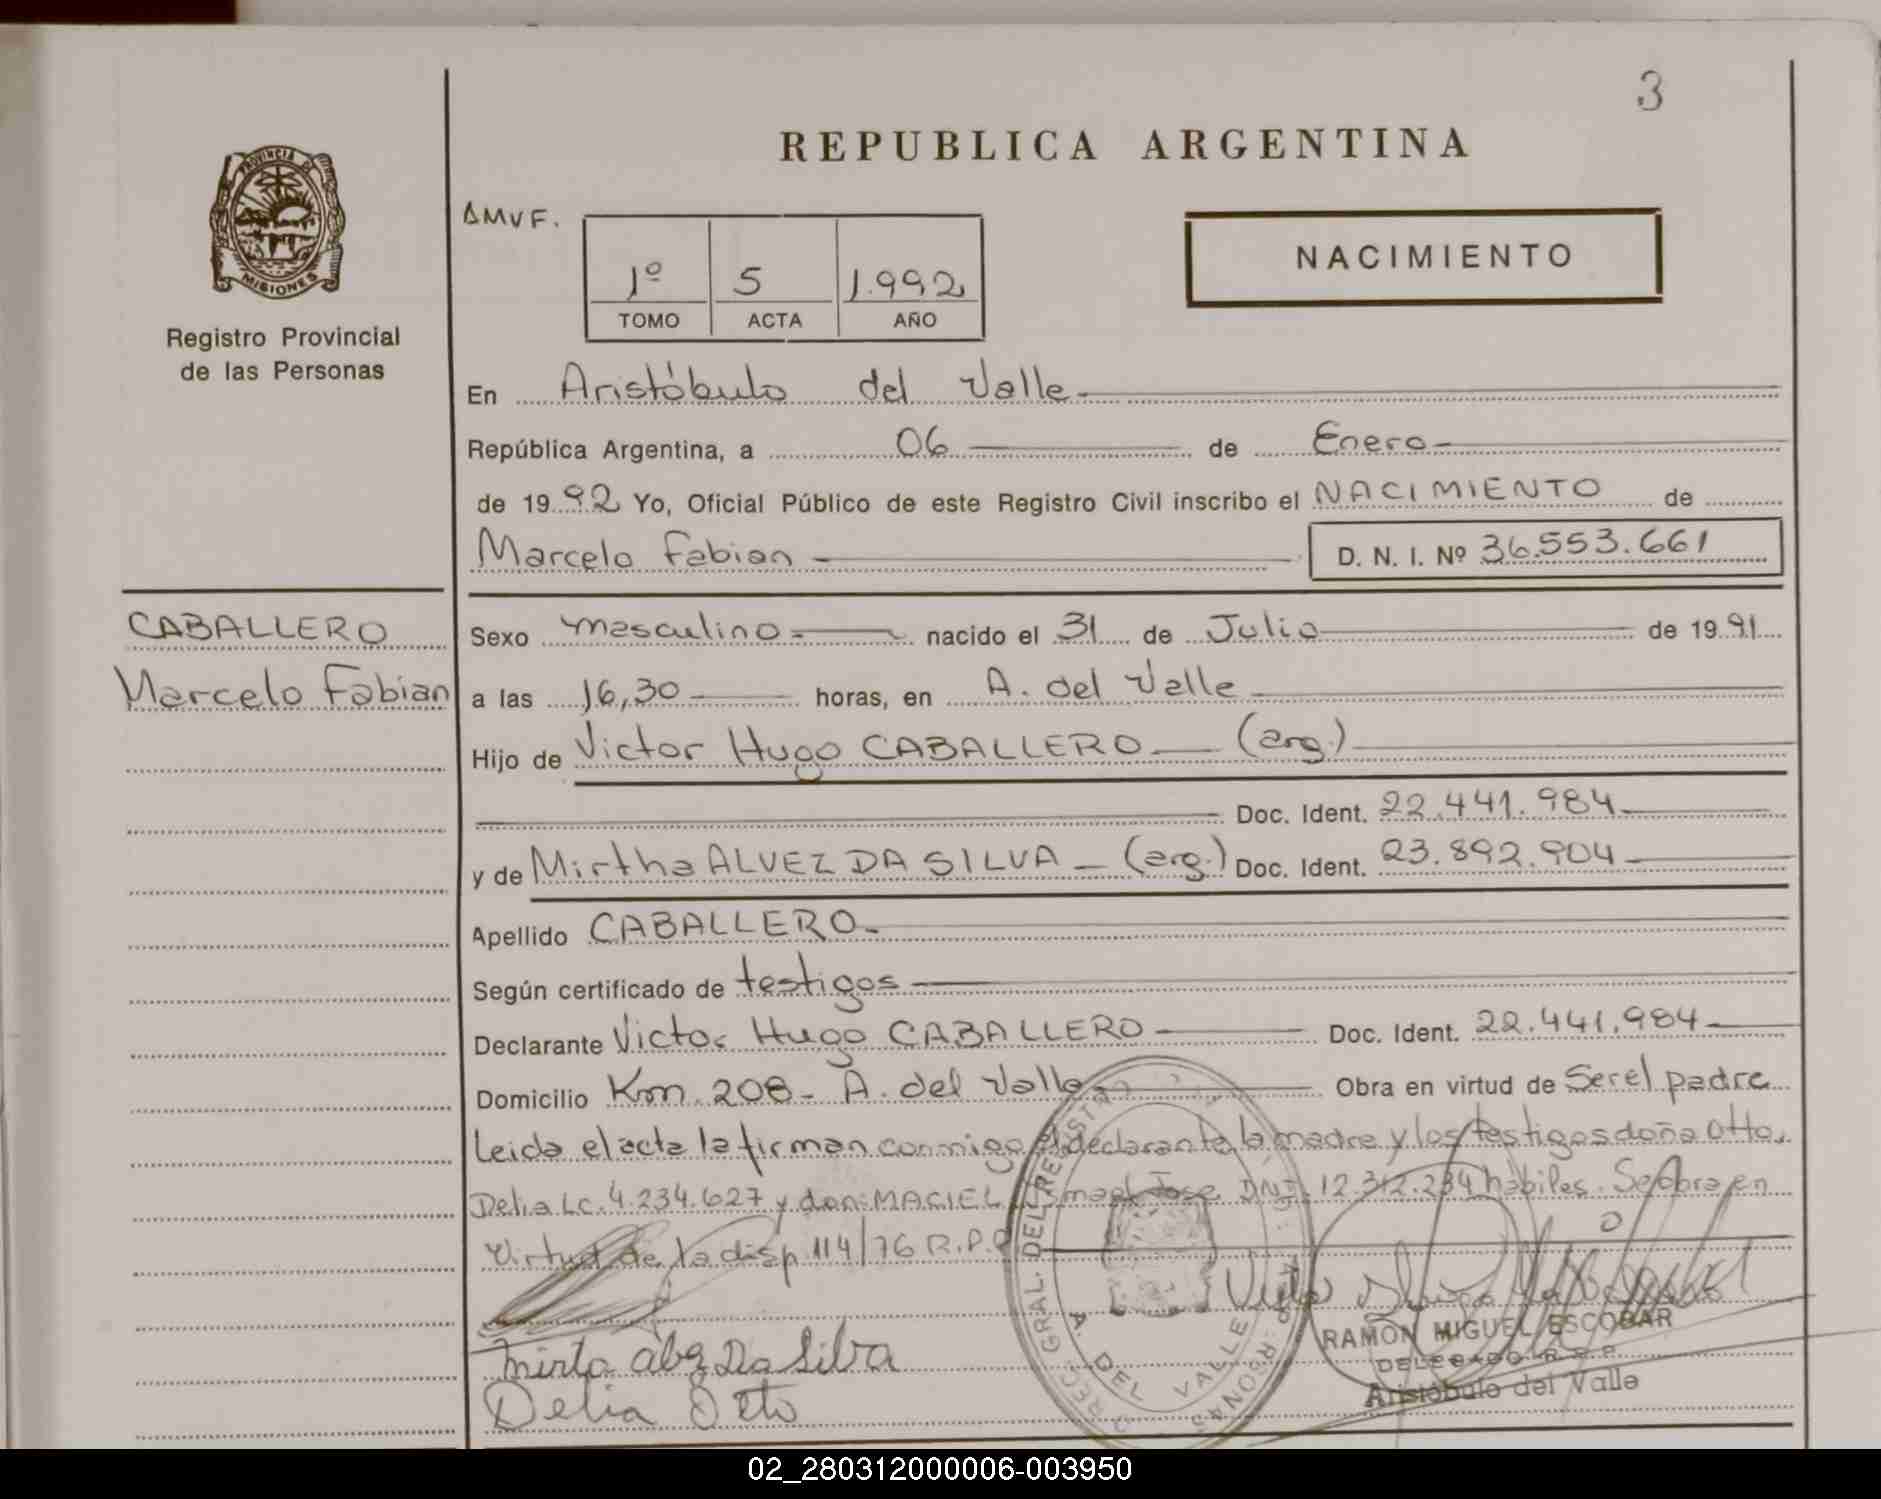 3
REPUBLICA ARGENTINA
PROVINCIA DE
MISIONES
Registro Provincial
de las Personas
AMVF.
1º 5 1.992
TOMO ACTA AÑO
NACIMIENTO
En Aristóbulo del Valle
República Argentina, a 06 de Enero
de 1992 Yo, Oficial Público de este Registro Civil inscribo el NACIMIENTO de
Marcelo Fabian D. N. I. Nº 36.553.661
CABALLERO
Marcelo Fabian
Sexo masculino nacido el 31 de Julio de 1991
a las 16,30 horas, en A. del Valle
Hijo de Victor Hugo CABALLERO (arg.)
Doc. Ident. 22.441.984
y de Mirtha ALVEZ DA SILVA (arg.) Doc. Ident. 23.892.904
Apellido CABALLERO
Según certificado de testigos
Declarante Victor Hugo CABALLERO Doc. Ident. 22.441.984
Domicilio Km. 208 - A. del Valle Obra en virtud de Ser el padre
Leida el acta la firman conmigo el declarante la madre y los testigos doña Otto,
Delia Lc. 4.234.627 y don: MACIEL Ismael Jose DNI. 12.312.234 hábiles. Se obra en
Virtud de la disp 114/76 R.P.P
A. DEL VALLE
RAMON MIGUEL ESCOBAR
DELEGADO R.P.P.
Aristóbulo del Valle
Mirta Da Silva
Delia Otto
02_280312000006-003950